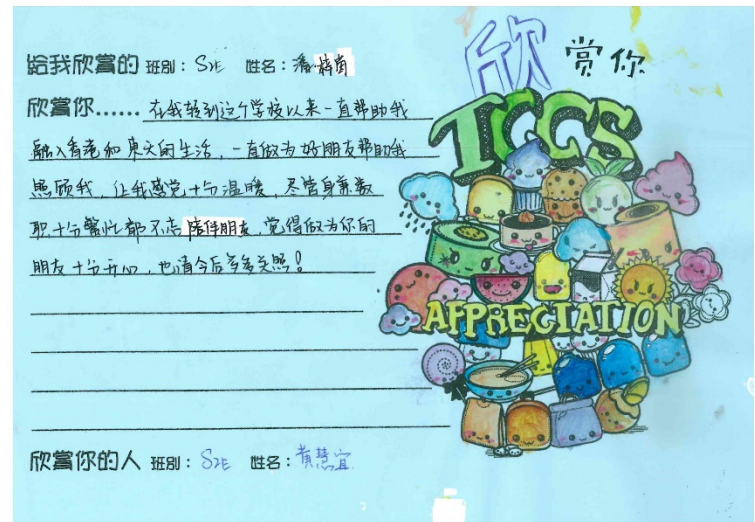 給我欣賞的 班別：S2E 姓名：潘梓茵
欣賞你...... 在我转到这个学校以来一直帮助我
融入香港和東天的生活，一直做为好朋友帮助我
照顾我，让我感觉十分温暖，尽管身兼数
职十分繁忙都不忘陪伴朋友，觉得做为你的
朋友十分开心，也请今后多多关照！
欣賞你的人 班別：S2E 姓名：黄慧宜
欣賞你
TCCS
APPRECIATION